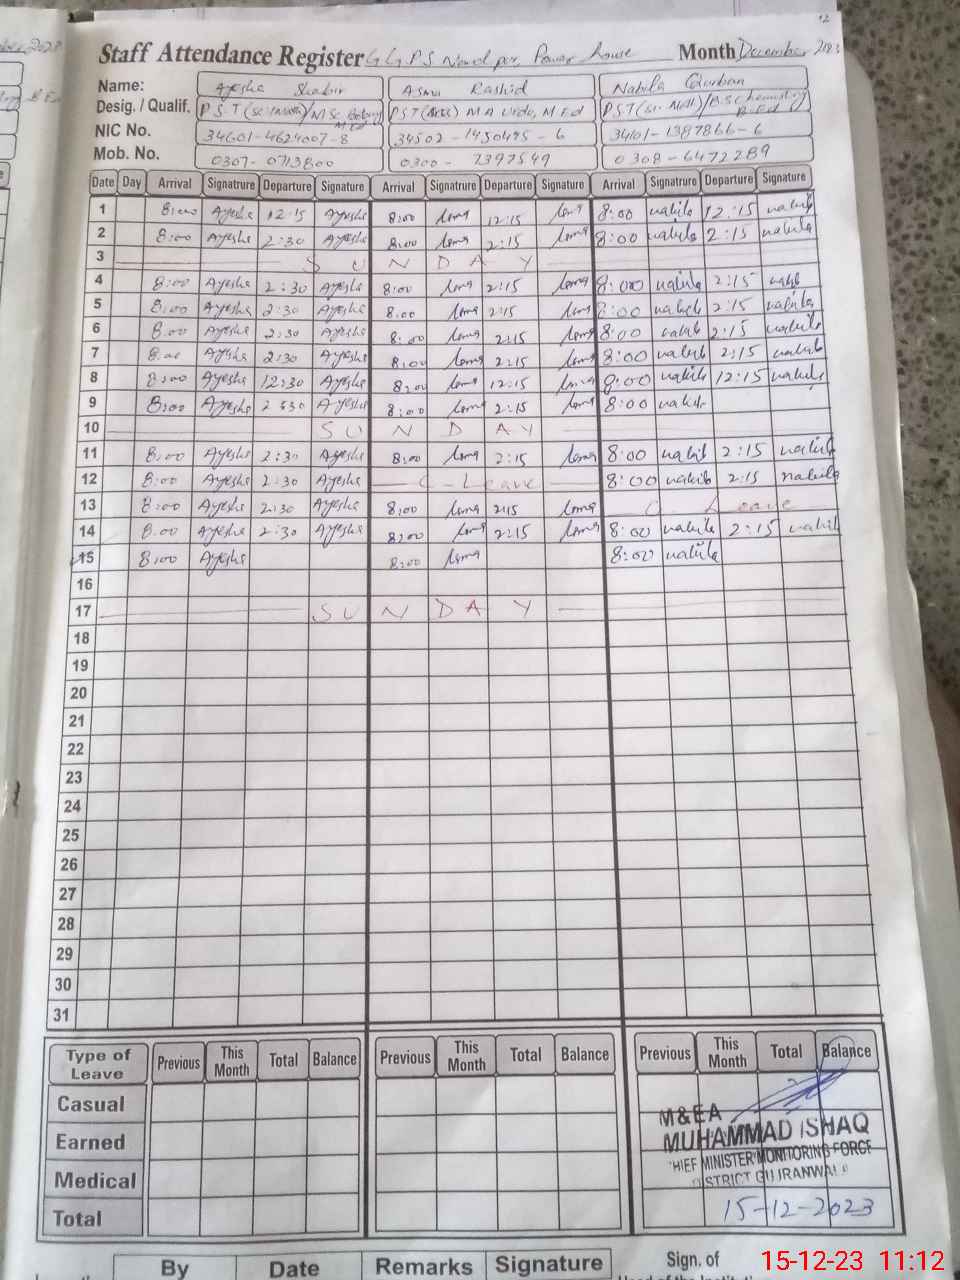 12
Staff Attendance Register GGPS Nowshera, Power house Month December 2023
Name: Ayesha Shabir Asma Rashid Nabila Qurban
Desig. / Qualif. P.S.T (Sc: Math)/M.Sc Botany M.Ed PST (Arts) M A Urdu, M.Ed P.S.T (Sr. Math)/B.S Chemistry B.Ed
NIC No. 34601-4624007-8 34502-1450495-6 34101-1387866-6
Mob. No. 0307-0713800 0300-7397549 0308-6472289
Date Day Arrival Signatrure Departure Signature Arrival Signatrure Departure Signature Arrival Signatrure Departure Signature
1 8:00 Ayesha 12:15 Ayesha 8:00 12:15 8:00 nabila 12:15 nabila
2 8:00 Ayesha 2:30 Ayesha 8:00 2:15 8:00 nabila 2:15 nabila
3 SUNDAY
4 8:00 Ayesha 2:30 Ayesha 8:00 2:15 8:00 nabila 2:15 nabila
5 8:00 Ayesha 2:30 Ayesha 8:00 2:15 8:00 nabila 2:15 nabila
6 8:00 Ayesha 2:30 Ayesha 8:00 2:15 8:00 nabila 2:15 nabila
7 8:00 Ayesha 2:30 Ayesha 8:00 2:15 8:00 nabila 2:15 nabila
8 8:00 Ayesha 12:30 Ayesha 8:00 12:15 8:00 nabila 12:15 nabila
9 8:00 Ayesha 2:30 Ayesha 8:00 2:15 8:00 nabila
10 SUNDAY
11 8:00 Ayesha 2:30 Ayesha 8:00 2:15 8:00 nabila 2:15 nabila
12 8:00 Ayesha 2:30 Ayesha C-Leave 8:00 nabila 2:15 nabila
13 8:00 Ayesha 2:30 Ayesha 8:00 2:15 C. Leave
14 8:00 Ayesha 2:30 Ayesha 8:00 2:15 8:00 nabila 2:15 nabila
15 8:00 Ayesha 8:00 8:00 nabila
16
17 SUNDAY
18
19
20
21
22
23
24
25
26
27
28
29
30
31
Type of Leave Previous This Month Total Balance Previous This Month Total Balance Previous This Month Total Balance
Casual
Earned
Medical
Total
M&EA
MUHAMMAD ISHAQ
CHIEF MINISTER MONITORING FORCE
DISTRICT GUJRANWALA
15-12-2023
By Date Remarks Signature Sign. of
15-12-23 11:12